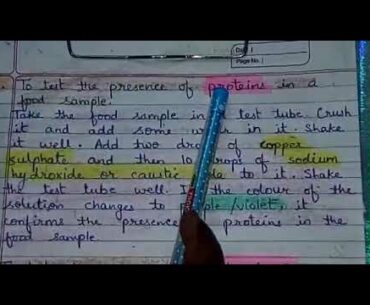 Date
Page No.
To test the presence of proteins in a
food sample.
Take the food sample in a test tube. Crush
it and add some in it. Shake
it well. Add two of copper
sulphate and then 10 drops of sodium
hydroxide or caustic to it. Shake
the test tube well. the colour of the
solution changes to /violet, it
confirms the presence proteins in the
food sample.